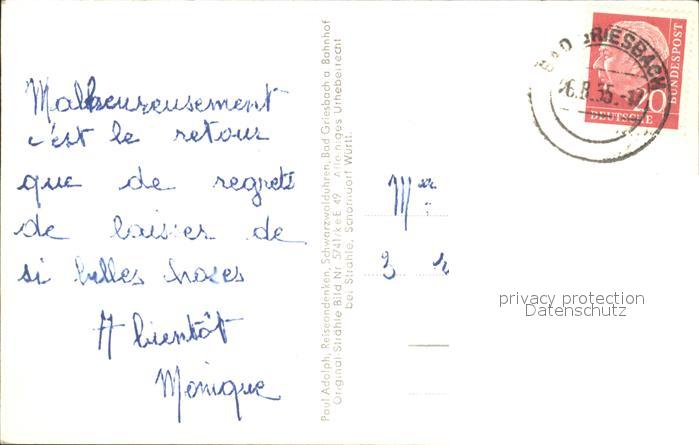 Malheureusement
c'est le retour
que de regrets
de laisser de
si belles choses
A bientôt
Monique
Paul Adolph, Reiseandenken, Schwarzwalduhren, Bad Griesbach a. Bahnhof
Original-Strähle Bild Nr. 5741/keE 49 Alleiniges Urheberrecht
bei Strähle, Schorndorf Württ.
BAD GRIESBACH
DEUTSCHE
BUNDESPOST
20
3
privacy protection
Datenschutz